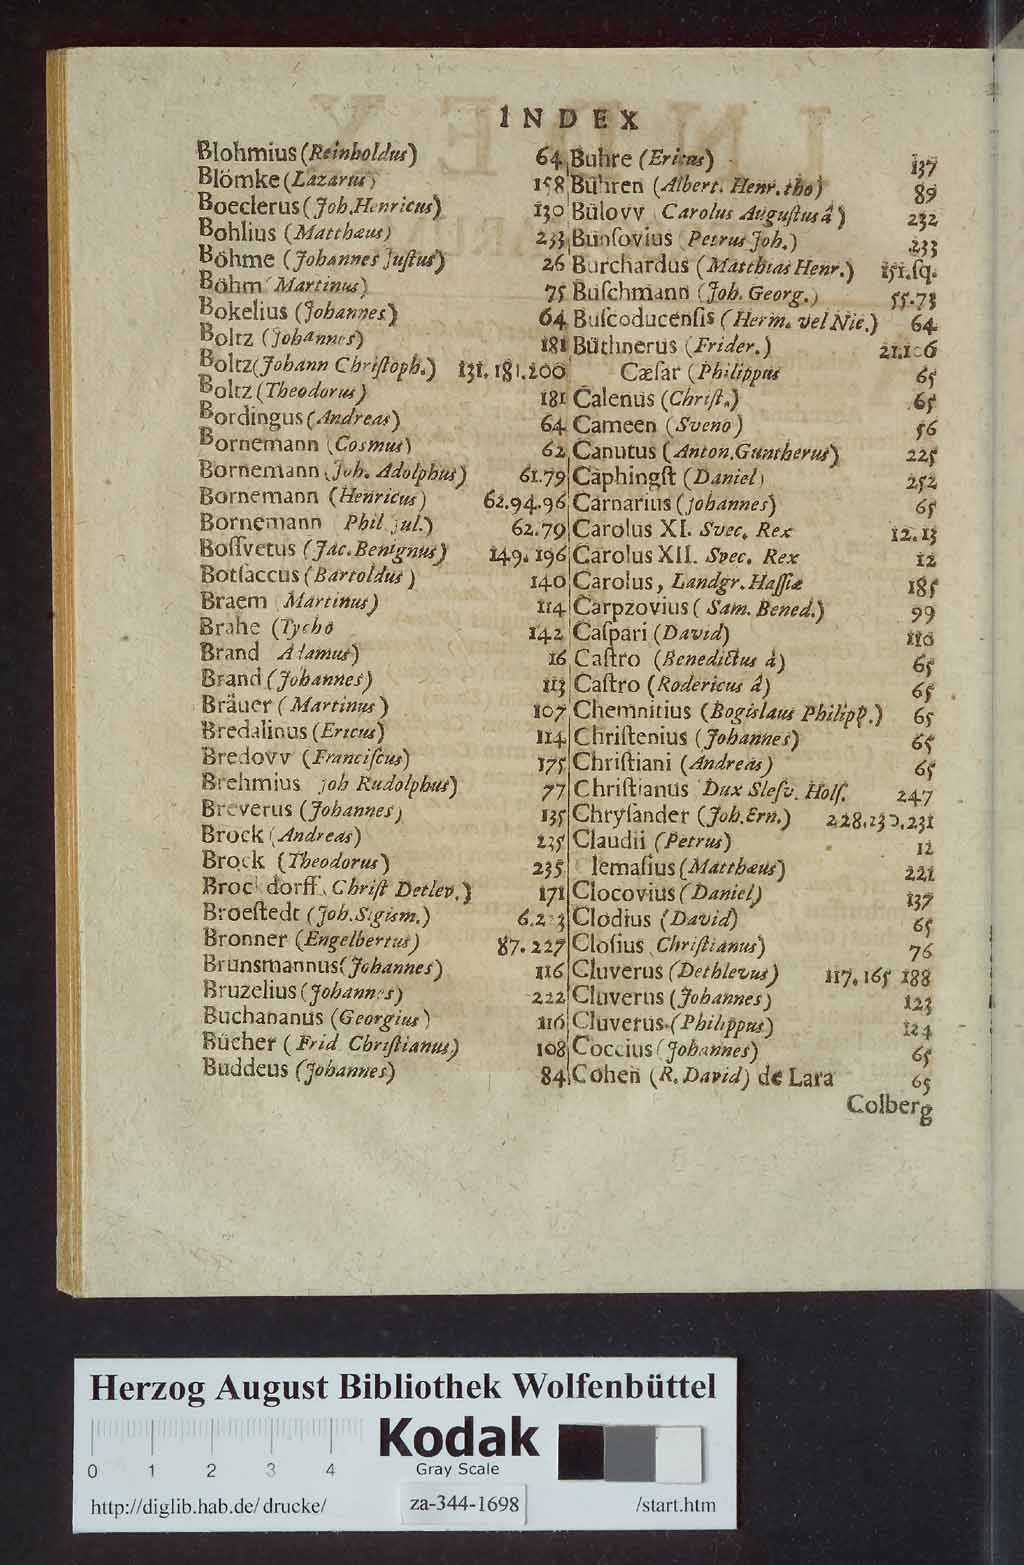 INDEX
Blohmius (Reinholdus) 64
Blömke (Lazarus) 158
Boeclerus (Joh. Henricus) 130
Bohlius (Matthæus) 233
Böhme (Johannes Juſtus) 26
Böhm (Martinus) 75
Bokelius (Johannes) 64
Boltz (Johannes) 181
Boltz (Johann Chriſtoph.) 131. 181. 200
Boltz (Theodorus) 181
Bordingus (Andreas) 64
Bornemann (Cosmus) 62
Bornemann (Joh. Adolphus) 61. 79
Bornemann (Henricus) 62. 94. 96
Bornemann Phil. Jul.) 62. 79
Boſſvetus (Jac. Benignus) 149. 196
Botſaccus (Bartoldus) 140
Braem Martinus) 114
Brahe (Tycho 142
Brand Adamus) 16
Brand (Johannes) 113
Bräuer (Martinus) 107
Bredalinus (Ericus) 114
Bredovv (Franciſcus) 175
Brehmius Joh Rudolphus) 77
Breverus (Johannes) 135
Brock (Andreas) 235
Brock (Theodorus) 235
Brockdorff (Chriſt Detlev.) 171
Broeſtedt (Joh. Sigism.) 6. 223
Bronner (Engelbertus) 87. 227
Brunsmannus (Johannes) 116
Bruzelius (Johannes) 222
Buchananus (Georgius) 116
Bücher (Frid Chriſtianus) 108
Buddeus (Johannes) 84
Buhre (Ericus) 137
Bühren (Albert. Henr. tho) 89
Bülovv Carolus Auguſtus â) 232
Bunſovius (Petrus Joh.) 233
Burchardus (Matthias Henr.) 151. ſq.
Buſchmann (Joh. Georg.) 55. 73
Buſcoducenſis (Herm. vel Nic.) 64
Büthnerus (Frider.) 21. 106
Cæſar (Philippus 65
Calenus (Chriſt.) 65
Cameen (Sveno) 56
Canutus (Anton. Guntherus) 225
Caphingſt (Daniel) 252
Carnarius (Johannes) 65
Carolus XI. Svec. Rex 12. 13
Carolus XII. Svec. Rex 12
Carolus, Landgr. Haſſiæ 185
Carpzovius (Sam. Bened.) 99
Caſpari (David) 110
Caſtro (Benedictus â) 65
Caſtro (Rodericus â) 65
Chemnitius (Bogislaus Philipp.) 65
Chriſtenius (Johannes) 65
Chriſtiani (Andreas) 65
Chriſtianus Dux Sleſv. Holſ. 247
Chryſander (Joh. Ern.) 228. 230. 231
Claudii (Petrus) 12
lemaſius (Matthæus) 221
Clocovius (Daniel) 137
Clodius (David) 65
Cloſius Chriſtianus) 76
Cluverus (Dethlevus) 117. 165 188
Cluverus (Johannes) 123
Cluverus (Philippus) 124
Coccius (Johannes) 65
Cohen (R. David) de Lara 65
Colberg
Herzog August Bibliothek Wolfenbüttel
0 1 2 3 4
Kodak
Gray Scale
http://diglib.hab.de/drucke/ za-344-1698 /start.htm